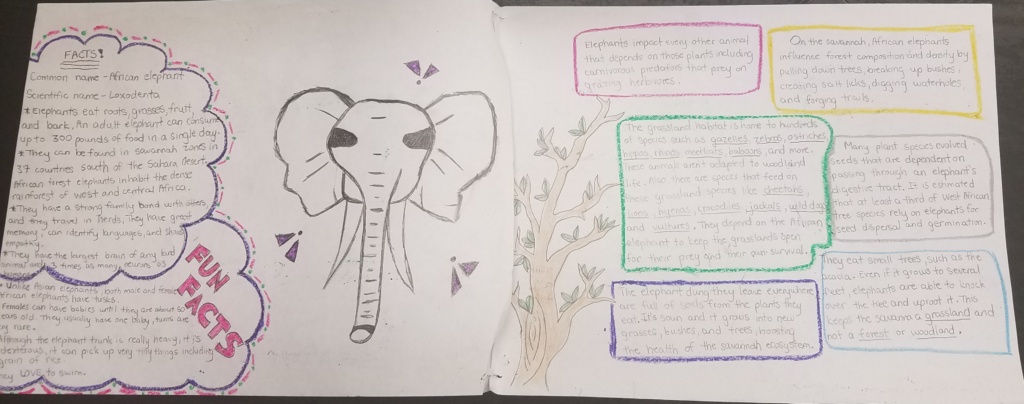 FACTS!
Common name - African elephant
Scientific name - Loxodonta
* Elephants eat roots, grasses, fruit,
and bark. An adult elephant can consume
up to 300 pounds of food in a single day.
* They can be found in savannah zones in
37 countries south of the Sahara desert.
African forest elephants inhabit the dense
rainforest of west and central Africa.
* They have a strong family bond with others,
and they travel in herds. They have great
memory, can identify languages, and show
empathy.
* They have the largest brain of any land
animal with 3 times as many neurons, as
FUN
FACTS
* Unlike Asian elephants, both male and female
African elephants have tusks.
Females can have babies until they are about 50
years old. They usually have one baby, twins are
very rare.
Although the elephant trunk is really heavy, it is
it can pick up very tiny things including
grain of rice
They LOVE to swim.
Elephants impact every other animal
that depends on those plants including
carnivorous predators that prey on
grazing herbivores.
On the savannah, African elephants
influence forest composition and density by
pulling down trees, breaking up bushes,
creating salt licks, digging waterholes,
and forging trails.
The grassland habitat is home to hundreds
of species such as gazelles, zebras, ostriches,
hippos, rhinos, meerkats, baboons, and more.
These animals aren't adapted to woodland
life. Also, there are species that feed on
these grassland species like cheetahs,
lions, hyenas, crocodiles, jackals, wild dogs
and vultures. They depend on the African
elephant to keep the grasslands open
for their prey and their own survival.
Many plant species evolved
seeds that are dependent on
passing through an elephant's
digestive tract. It is estimated
that at least a third of West African
tree species rely on elephants for
seed dispersal and germination.
The elephant dung they leave everywhere
are full of seeds from the plants they
eat. It's sown and it grows into new
grasses, bushes, and trees, boosting
the health of the savannah ecosystem.
They eat small trees, such as the
acacia. Even if it grows to several
feet, elephants are able to knock
over the tree and uproot it. This
keeps the savanna a grassland and
not a forest or woodland.